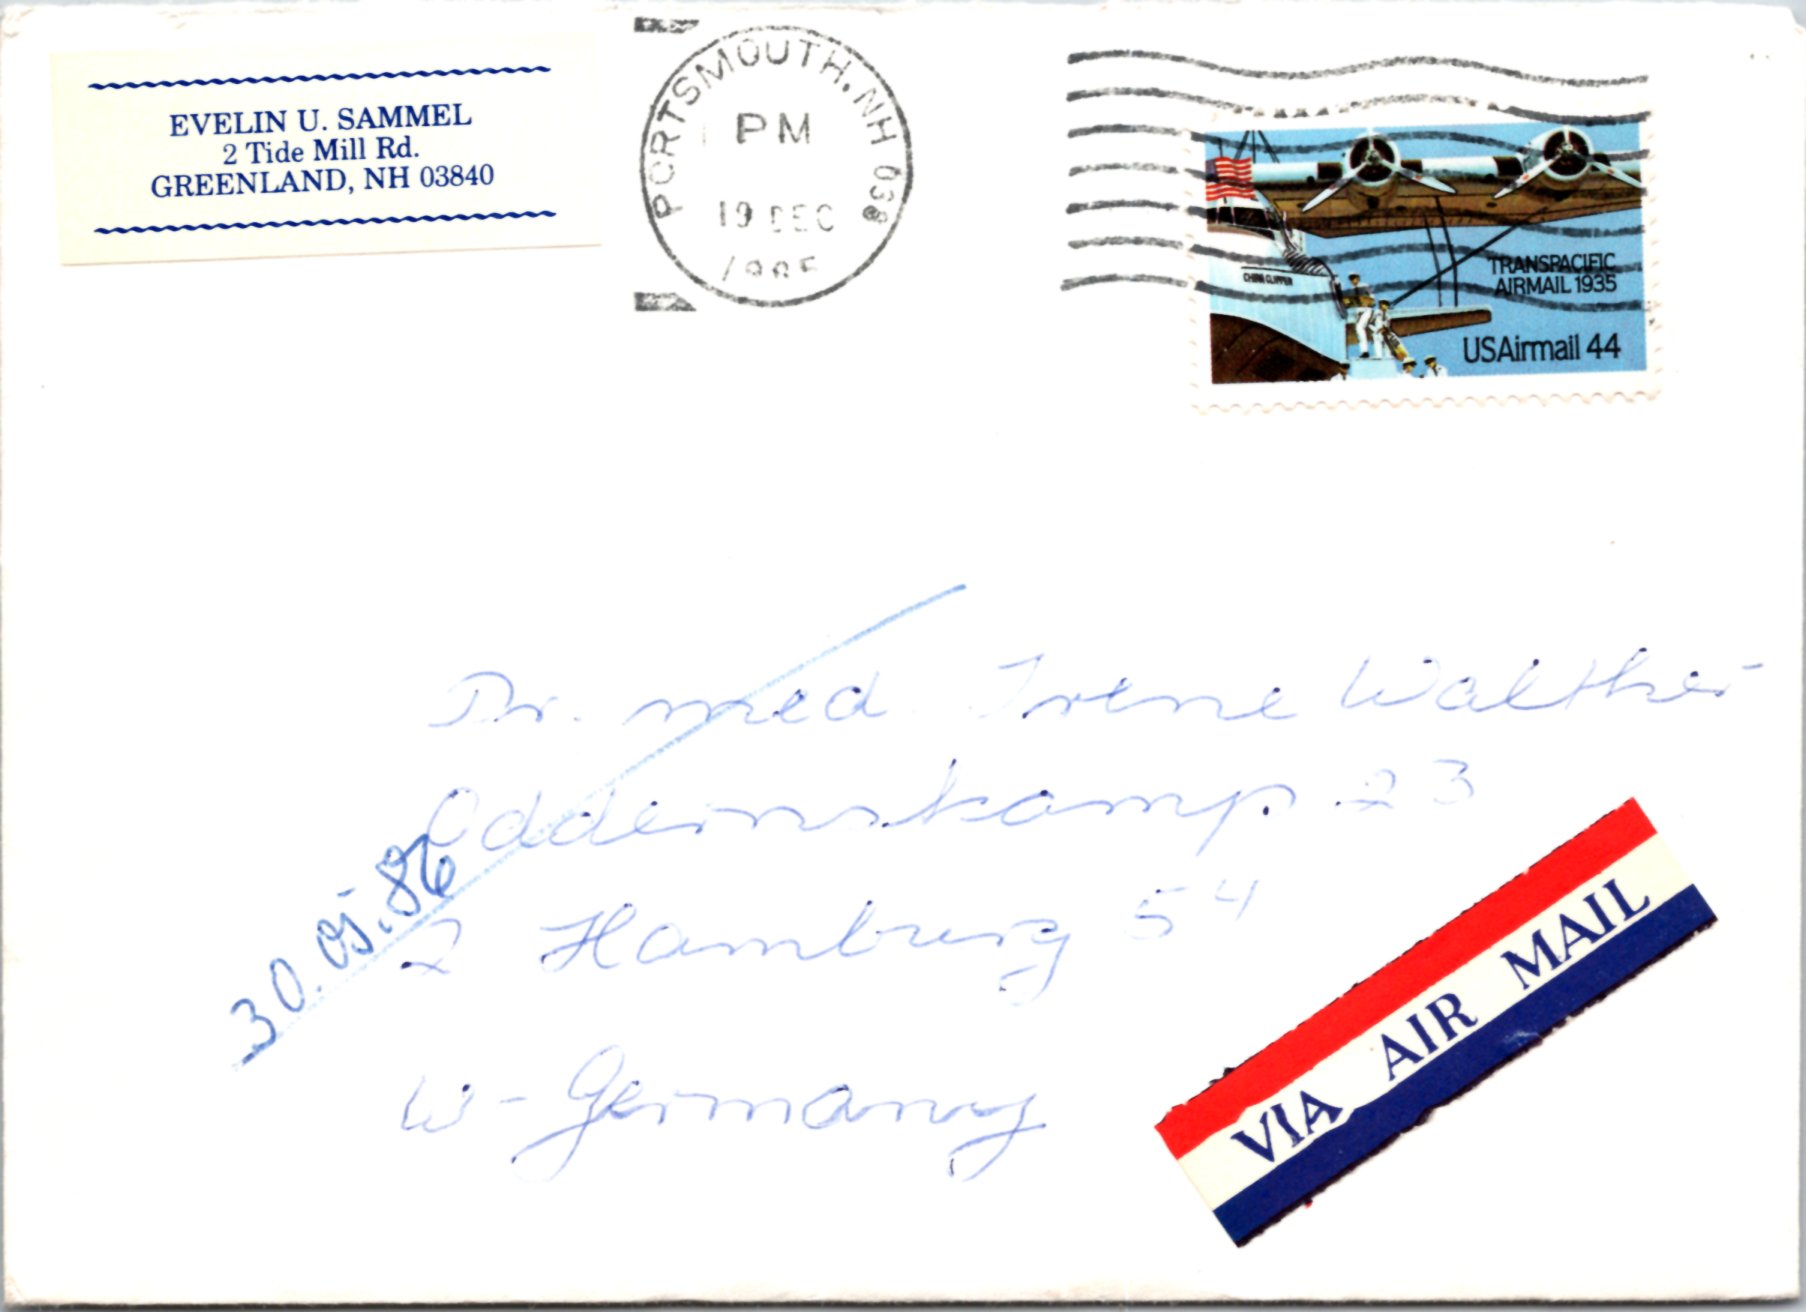 EVELIN U. SAMMEL
2 Tide Mill Rd.
GREENLAND, NH 03840
PORTSMOUTH, NH 038
PM
19 DEC
1985
CHINA CLIPPER
TRANSPACIFIC
AIRMAIL 1935
USAirmail 44
Dr. med Irene Walther
23
2 Hamburg 54
W-Germany
30.05.86
VIA AIR MAIL